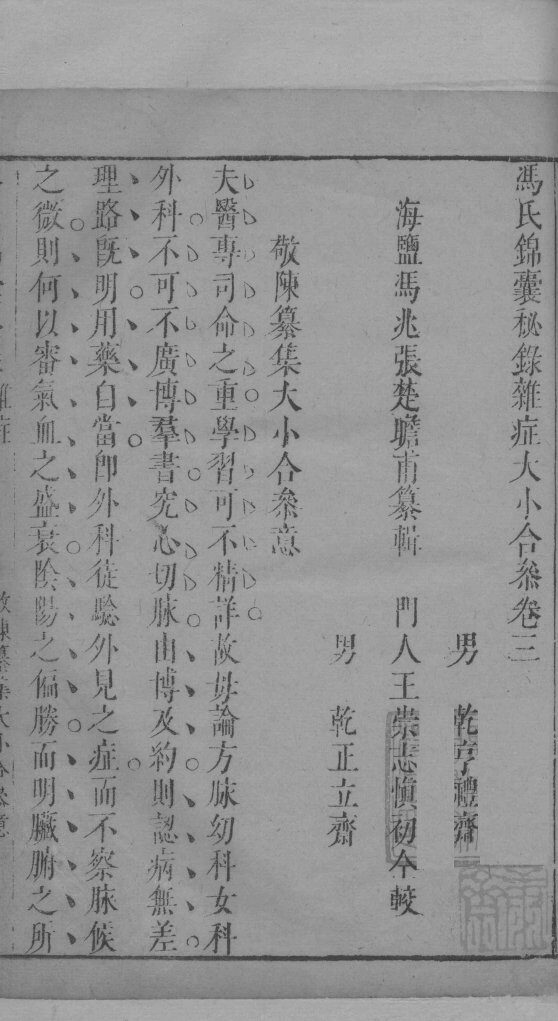 馮氏錦囊秘錄雜症大小合叅卷三
男 乾亨禮齋
海鹽馮兆張楚瞻甫纂輯 門人王崇志愼初仝較
男 乾正立齋
敬陳纂集大小合叅意
夫醫專司命之重學習可不精詳故毋論方脉幼科女科
外科不可不廣博羣書究心切脉由博及約則認病無差
理路旣明用藥自當卽外科徒騐外見之症而不察脉候
之微則何以審氣血之盛衰陰陽之偏勝而明臟腑之所
敬陳纂集大小合叅意